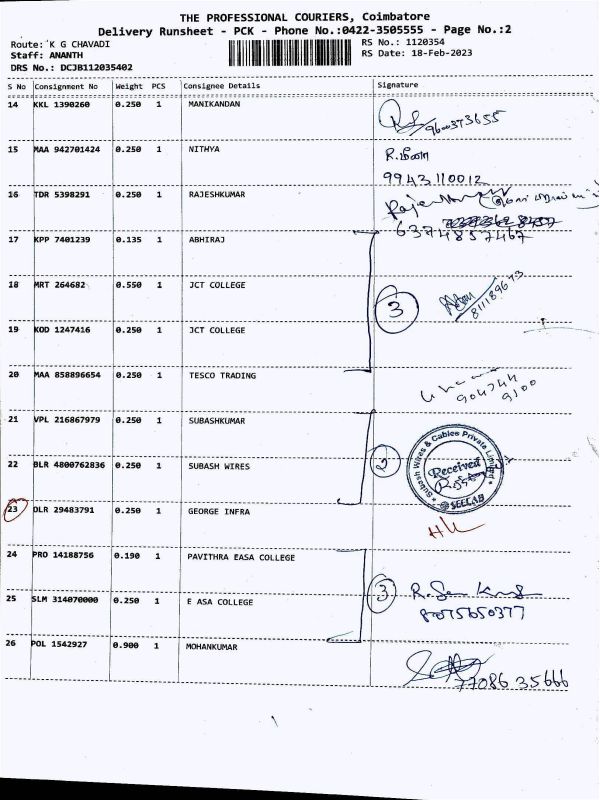 THE PROFESSIONAL COURIERS, Coimbatore
Delivery Runsheet - PCK - Phone No.:0422-3505555 - Page No.:2
Route: K G CHAVADI RS No.: 1120354
Staff: ANANTH RS Date: 18-Feb-2023
DRS No.: DCJB112035402
S No Consignment No Weight PCS Consignee Details Signature
14 KKL 1390260 0.250 1 MANIKANDAN
9600373655
15 MAA 942701424 0.250 1 NITHYA R.மீனா
9943110012
16 TDR 5398291 0.250 1 RAJESHKUMAR
6374857467
17 KPP 7401239 0.135 1 ABHIRAJ
18 MRT 264682 0.550 1 JCT COLLEGE 3
8111189673
19 KOD 1247416 0.250 1 JCT COLLEGE
20 MAA 858896654 0.250 1 TESCO TRADING
904744
9100
21 VPL 216867979 0.250 1 SUBASHKUMAR
22 BLR 4800762836 0.250 1 SUBASH WIRES 2
Subash Wires & Cables Private Limited
Received
23 DLR 29483791 0.250 1 GEORGE INFRA
24 PRO 14188756 0.190 1 PAVITHRA EASA COLLEGE
3
25 SLM 314070000 0.250 1 E ASA COLLEGE
8075650377
26 POL 1542927 0.900 1 MOHANKUMAR
77086 35666